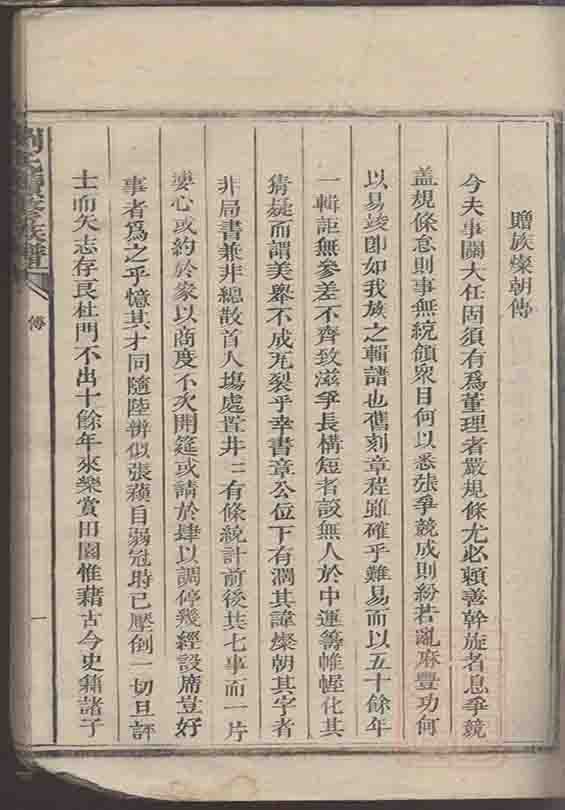 贈族燦朝傳
今夫事關大任固須有爲董理者嚴規條尤必頼善幹旋者息爭競
盖規條怠則事無統領衆目何以悉張爭競成則紛若亂麻豐功何
以易竣卽如我族之輯譜也舊刻章程雖確乎難易而以五十餘年
一輯詎無參差不齊致滋爭長構短者設無人於中運籌帷幄化其
猜疑而謂美舉不成瓦裂乎幸書章公位下有諱燦朝其字者
非局書兼非總散首人塲處置井三有條統計前後共七事而一片
婆心或約於衆以商度不次開筵或請於肆以調停幾經設席豈好
事者爲之乎憶其才同隨陸辨似張蘋自弱冠時已壓倒一切旦評
士而矢志存良杜門不出十餘年來樂賞田園惟藉古今史籍諸子
劉氏續修族譜
傳
一